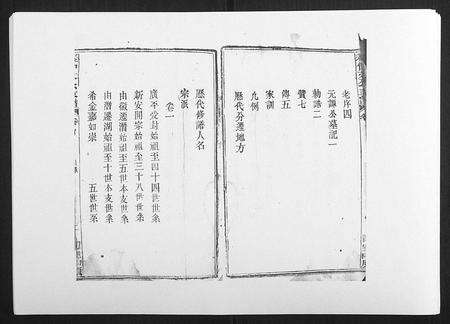 老序四
元譚公墓記一
勅誥二
贊七
傳五
家訓
凡例
歷代分遷地方
歷代修譜人名
宗派
卷一
廣平受封始祖至四十四世世系
新安開宗始祖至三十八世世系
由徽遷潛始祖至五世本支世系
由潛遷湖始祖至十世本支世系
希金嘉如崇 五世世系